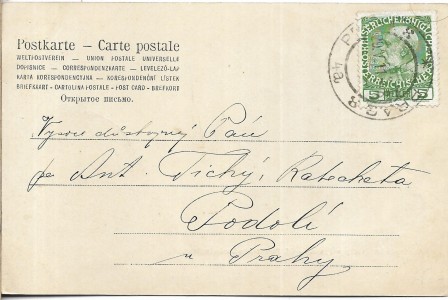 Postkarte – Carte postale
WELTPOSTVEREIN – UNION POSTALE UNIVERSELLE
DOPISNICE – CORRESPONDENZKARTE – LEVELEZŐ-LAP
KARTA KORESPONDENCYJNA – KORESPONDENČNÍ LÍSTEK
BREFKAART – CARTOLINA POSTALE – POST CARD – BREFKORT
Открытое письмо.
5
5
Vysoce důstojný Pán
Ant. Tichý, Katecheta
Podolí
u Prahy